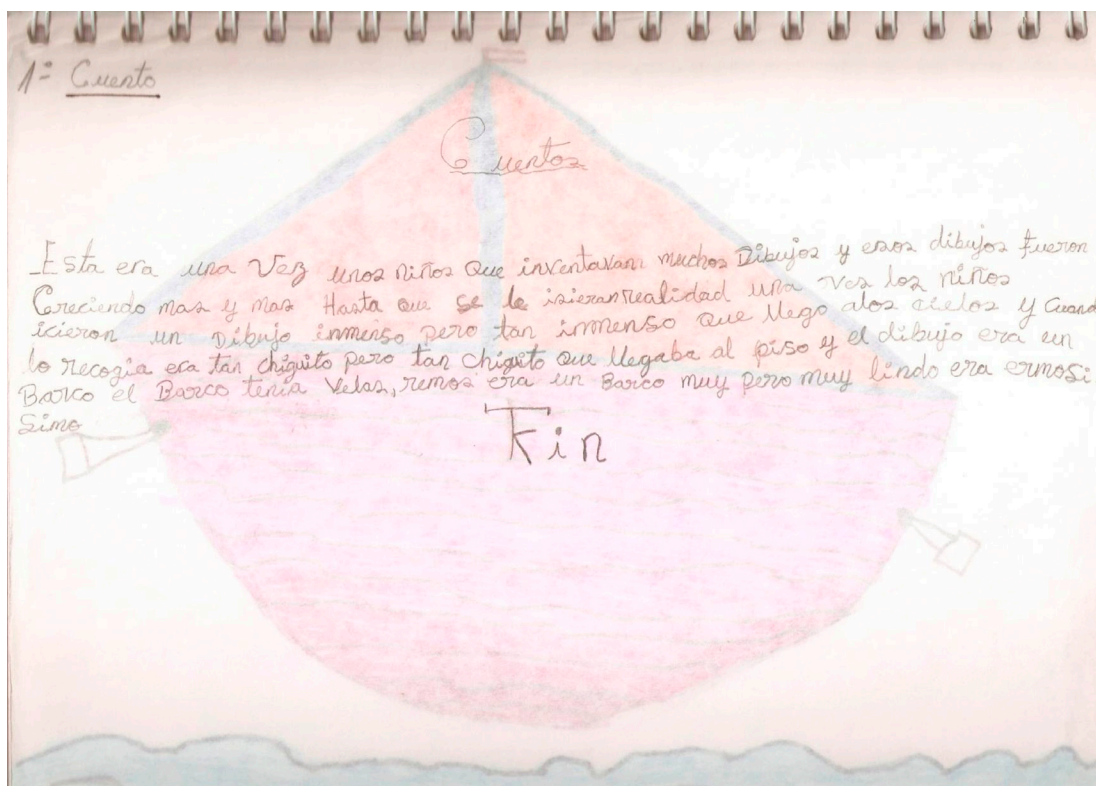 1º Cuento
Cuentos
Esta era una Vez unos niños Que inventavan muchos Dibujos y esos dibujos fueron
Creciendo mas y mas Hasta que se le isieran realidad una ves los niños
icieron un Dibujo inmenso pero tan inmenso que llego alos cielos y Cuand
lo recogia era tan chiguito pero tan Chiguito que llegaba al piso y el dibujo era un
Barco el Barco tenia Velas, remos era un Barco muy pero muy lindo era ermosi
simo
Fin